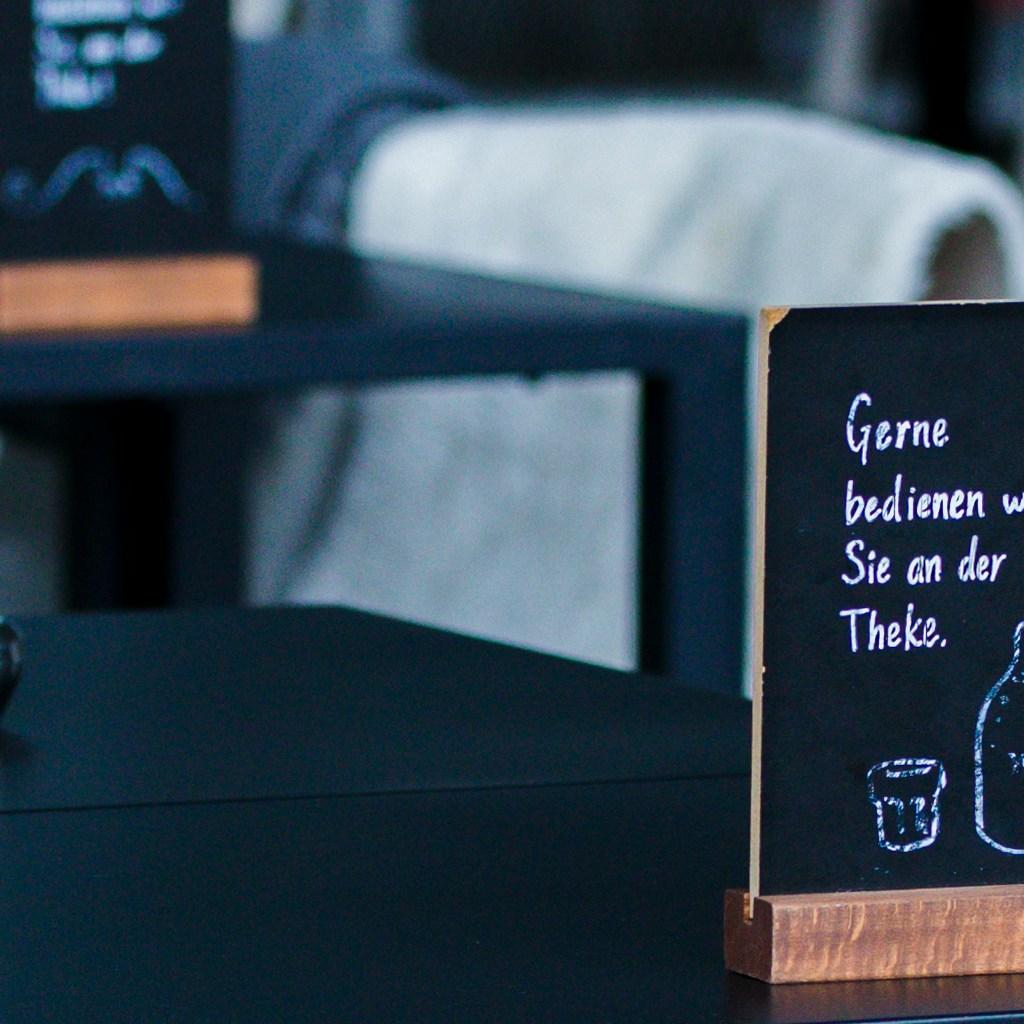 Sie an der
Gerne
bedienen w
Sie an der
Theke.